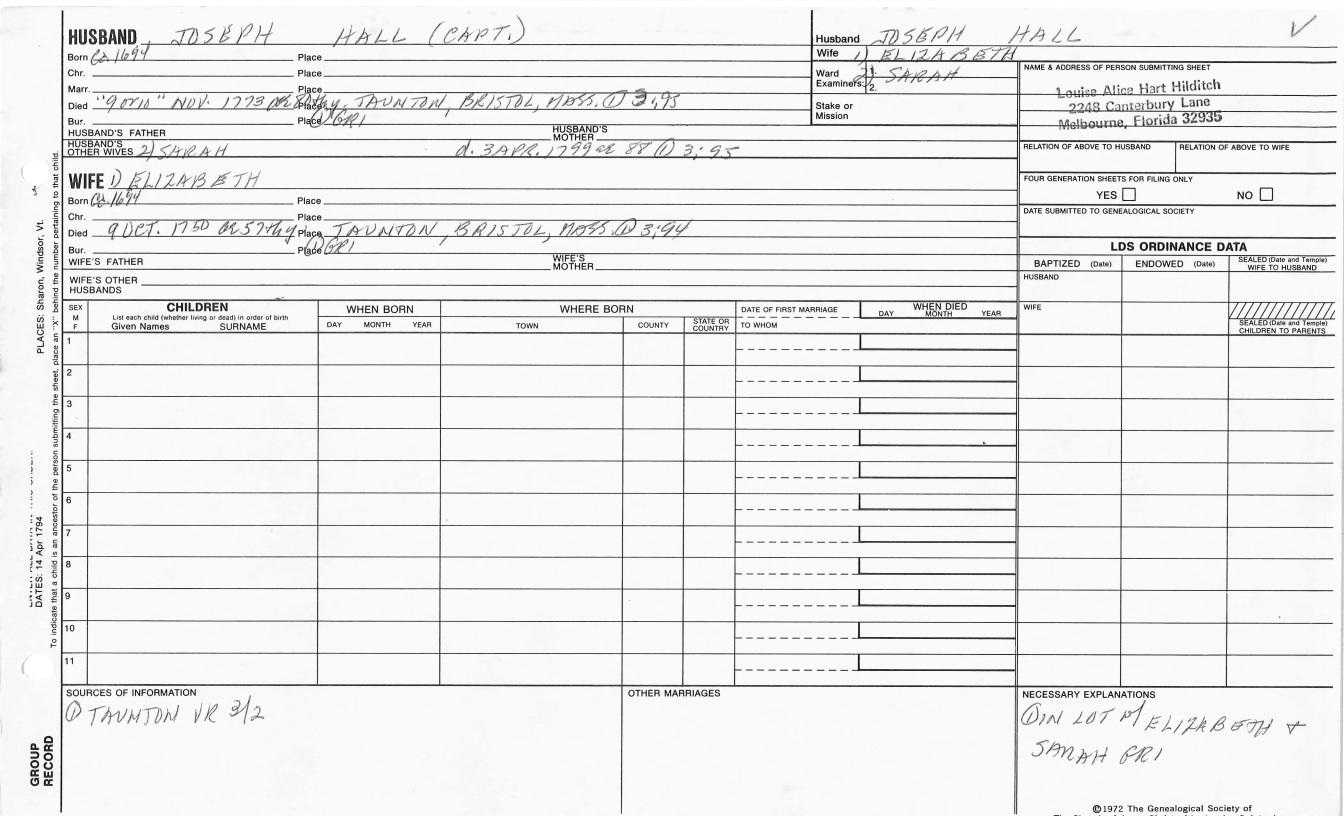 HUSBAND JOSEPH HALL (CAPT.)
Born Ca. 1694 Place
Chr. Place
Marr. Place
Died "9 or 10" NOV. 1773 Place TAUNTON, BRISTOL, MASS. ① 3:95
Bur. Place ① GRI
HUSBAND'S FATHER HUSBAND'S MOTHER
HUSBAND'S OTHER WIVES 2) SARAH d. 3 APR. 1799 ae 88 ① 3:95
WIFE 1) ELIZABETH
Born Ca. 1694 Place
Chr. Place
Died 9 OCT. 1750 ae 57th y Place TAUNTON, BRISTOL, MASS. ① 3:94
Bur. Place ① GRI
WIFE'S FATHER WIFE'S MOTHER
WIFE'S OTHER HUSBANDS
Husband JOSEPH HALL
Wife 1) ELIZABETH
Ward Examiners: 1. 2. 2) SARAH
Stake or Mission
NAME & ADDRESS OF PERSON SUBMITTING SHEET
Louise Alice Hart Hilditch
2248 Canterbury Lane
Melbourne, Florida 32935
RELATION OF ABOVE TO HUSBAND RELATION OF ABOVE TO WIFE
FOUR GENERATION SHEETS FOR FILING ONLY
YES NO
DATE SUBMITTED TO GENEALOGICAL SOCIETY
LDS ORDINANCE DATA
BAPTIZED (Date) ENDOWED (Date) SEALED (Date and Temple) WIFE TO HUSBAND
HUSBAND
WIFE
SEALED (Date and Temple) CHILDREN TO PARENTS
SEX M F
CHILDREN
List each child (whether living or dead) in order of birth
Given Names SURNAME
WHEN BORN
DAY MONTH YEAR
WHERE BORN
TOWN COUNTY STATE OR COUNTRY
DATE OF FIRST MARRIAGE
TO WHOM
WHEN DIED
DAY MONTH YEAR
1
2
3
4
5
6
7
8
9
10
11
SOURCES OF INFORMATION
① TAUNTON VR 3/2
OTHER MARRIAGES
NECESSARY EXPLANATIONS
① IN LOT W/ ELIZABETH +
SARAH GRI
©1972 The Genealogical Society of
PLACES: Sharon, Windsor, Vt.
DATES: 14 Apr 1794
To indicate that a child is an ancestor of the person submitting the sheet, place an "X" behind the number pertaining to that child.
GROUP
RECORD